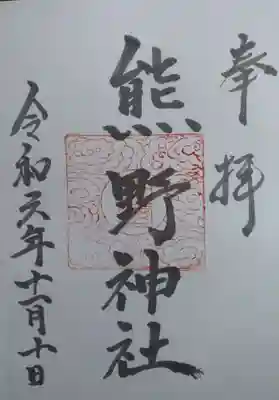 奉拝
熊野神社
令和元年十一月十日